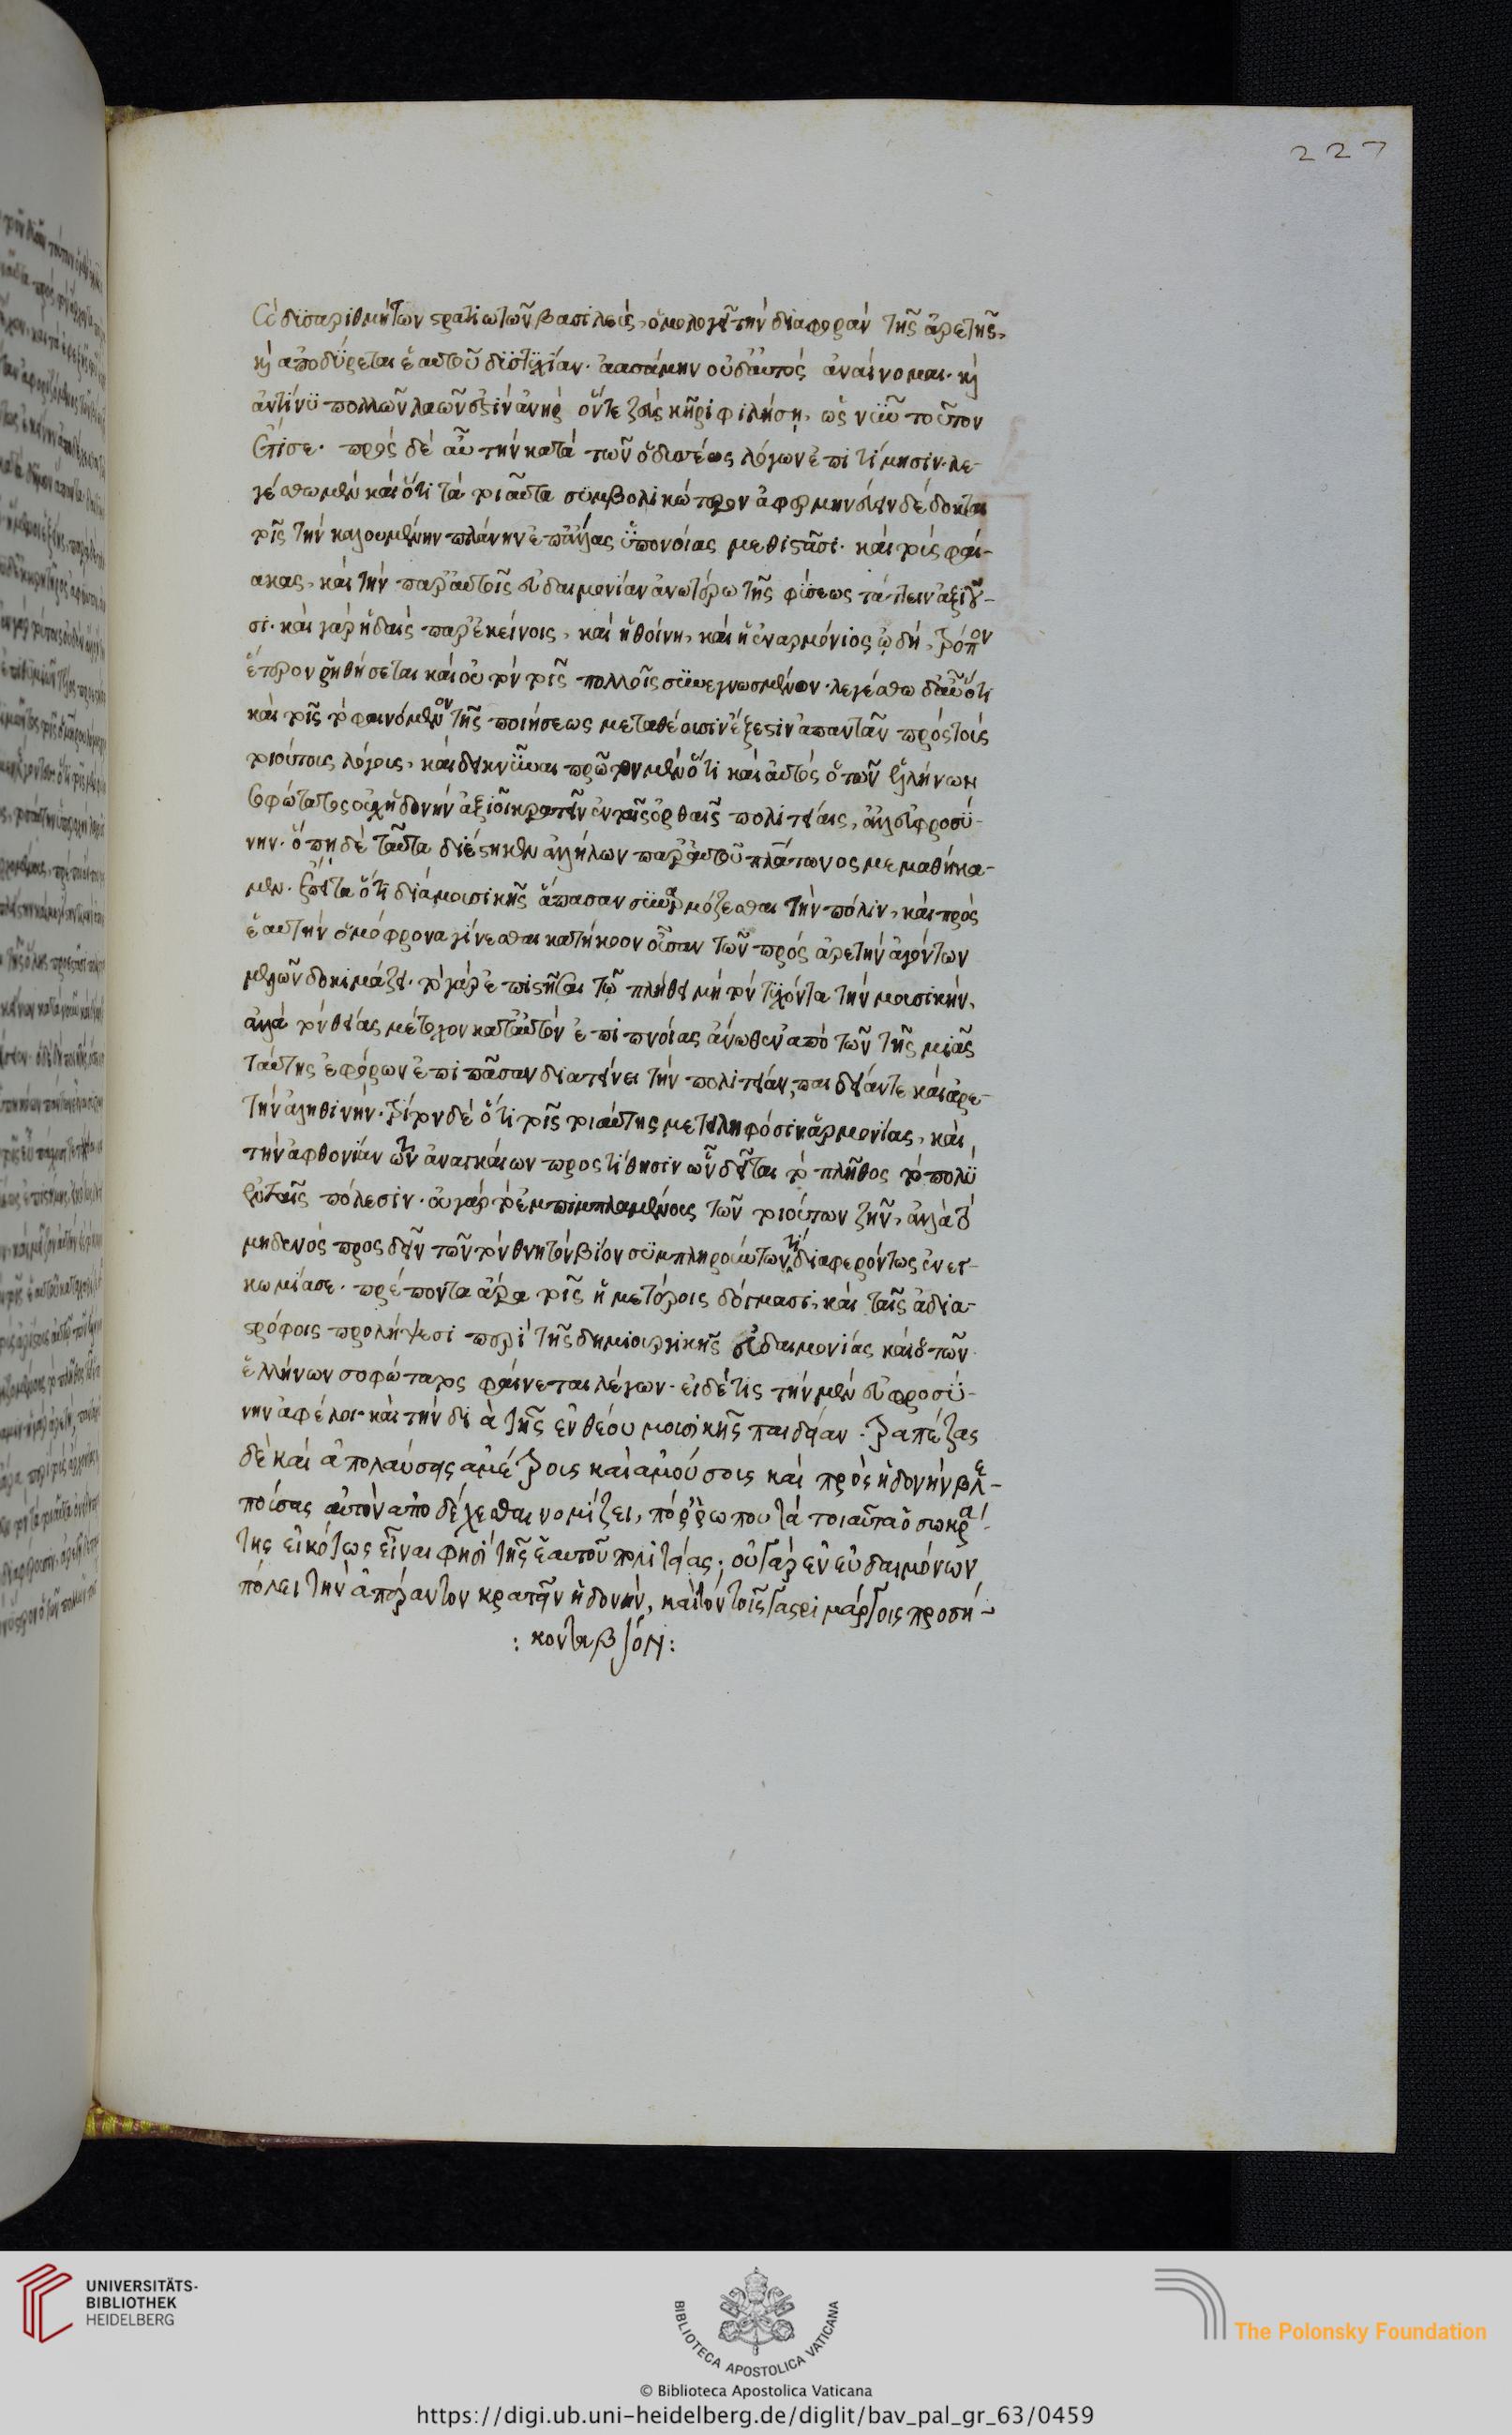 Ὁ δισαριθμήτων στρατιωτῶν βασιλεὺς, ὁμολογεῖ τὴν διαφορὰν τῆς ἀρετῆς,
καὶ ἀποδύρεται ἑαυτοῦ δυστυχίαν. ἀασάμην οὐδ' αὐτὸς ἀναίνομαι. καὶ
ἀντί νυ πολλῶν λαῶν ἐστὶν ἀνὴρ ὅντε ζεὺς κῆρι φιλήσῃ, ὡς νῦν τοῦτον
ἔτισε. πρὸς δὲ αὖ τὴν κατὰ τῶν ὀδυσσέως λόγων ἐπιτίμησιν. λε-
γέσθω μὲν καὶ ὅτι τὰ τοιαῦτα συμβολικώτερον ἀφερμηνεύειν δέδοκται
τοῖς τὴν καλουμένην πλάνην ἐπ' ἄλλας ὑπονοίας μεθιστᾶσι. καὶ τοὺς φαί-
ακας, καὶ τὴν παρ' αὐτοῖς εὐδαιμονίαν ἀνωτέρω τῆς φύσεως τάττειν ἀξιοῦ-
σι. καὶ γὰρ ἡ δαὶς παρ' ἐκείνοις, καὶ ἡ θοίνη, καὶ ἡ ἐναρμόνιος ᾠδὴ, τρόπον
ἕτερον ῥηθήσεται καὶ οὐ τὸν τοῖς πολλοῖς συνεγνωσμένον. λεγέσθω δ' αὖ ὅτι
καὶ τοῖς τὸ φαινόμενον τῆς ποιήσεως μεταθέουσιν ἔξεστιν ἀπαντᾶν πρὸς τοὺς
τοιούτους λόγους, καὶ δεικνύναι πρῶτον μὲν ὅτι καὶ αὐτὸς ὁ τῶν ἑλλήνων
σοφώτατος οὐχ ἡδονὴν ἀξιοῖ κρατεῖν ἐν ταῖς ὀρθαῖς πολιτείαις, ἀλλ' εὐφροσύ-
νην. ὅπη δὲ ταῦτα διέστηκεν ἀλλήλων παρ' αὐτοῦ πλάτωνος μεμαθήκα-
μεν. ἔπειτα ὅτι διὰ μουσικῆς ἅπασαν συναρμόζεσθαι τὴν πόλιν, καὶ πρὸς
ἑαυτὴν ὁμόφρονα γίνεσθαι κατήκοον οὖσαν τῶν πρὸς ἀρετὴν ἀγόντων
μελῶν δοκιμάζει. τὸ γὰρ ἐπιστῆσαι τῷ πλήθει μὴ τὸν τυχόντα τὴν μουσικὴν,
ἀλλὰ τὸν θείας μέτοχον κατ' αὐτὸν ἐπιπνοίας ἄνωθεν ἀπὸ τῶν τῆς μιᾶς
ταύτης ἐφόρων ἐπὶ πᾶσαν διατείνει τὴν πολιτείαν, παιδείαν τε καὶ ἀρε-
τὴν ἀληθινήν. τρίτον δὲ ὅτι τοῖς τοιαύτης μετειληφόσιν ἁρμονίας, καὶ
τὴν ἀφθονίαν τῶν ἀναγκαίων προστίθησιν ὧν δεῖται τὸ πλῆθος τὸ πολὺ
ἐν ταῖς πόλεσιν. οὐ γὰρ τὸ ἐμπιμπλαμένους τῶν τοιούτων ζῆν, ἀλλὰ τὸ
μηδενὸς προσδεῖν τῶν τὸν θνητὸν βίον συμπληρούντων τι διαφερόντως ἐνεγ-
κωμίασε. πρέποντα ἄρα τοῖς ἡμετέροις δόγμασι, καὶ ταῖς ἀδια-
στρόφοις προλήψεσι περὶ τῆς δημιουργικῆς εὐδαιμονίας καὶ ὁ τῶν
ἑλλήνων σοφώτατος φαίνεται λέγων. εἰ δέ τις τὴν μὲν εὐφροσύ-
νην ἀφέλοι. καὶ τὴν διὰ τῆς ἐνθέου μουσικῆς παιδείαν. τραπέζας
δὲ καὶ ἀπολαύσεις ἀμέτροις καὶ ἀμούσοις καὶ πρὸς ἡδονὴν βλε-
πούσας αὐτὸν ἀποδέχεσθαι νομίζει, πόρρω που τὰ τοιαῦτα ὁ σωκρά-
της εἰκότως εἶναι φησὶ τῆς ἑαυτοῦ πολιτείας; οὐ γὰρ ἐν εὐδαιμόνων
πόλει τὴν ἀπέραντον κρατεῖν ἡδονὴν, καὶ τὸν τοῖς γαστριμάργοις προσή-
: κοντα βίον:
227
UNIVERSITÄTS-
BIBLIOTHEK
HEIDELBERG
BIBLIOTECA APOSTOLICA VATICANA
The Polonsky Foundation
© Biblioteca Apostolica Vaticana
https://digi.ub.uni-heidelberg.de/diglit/bav_pal_gr_63/0459